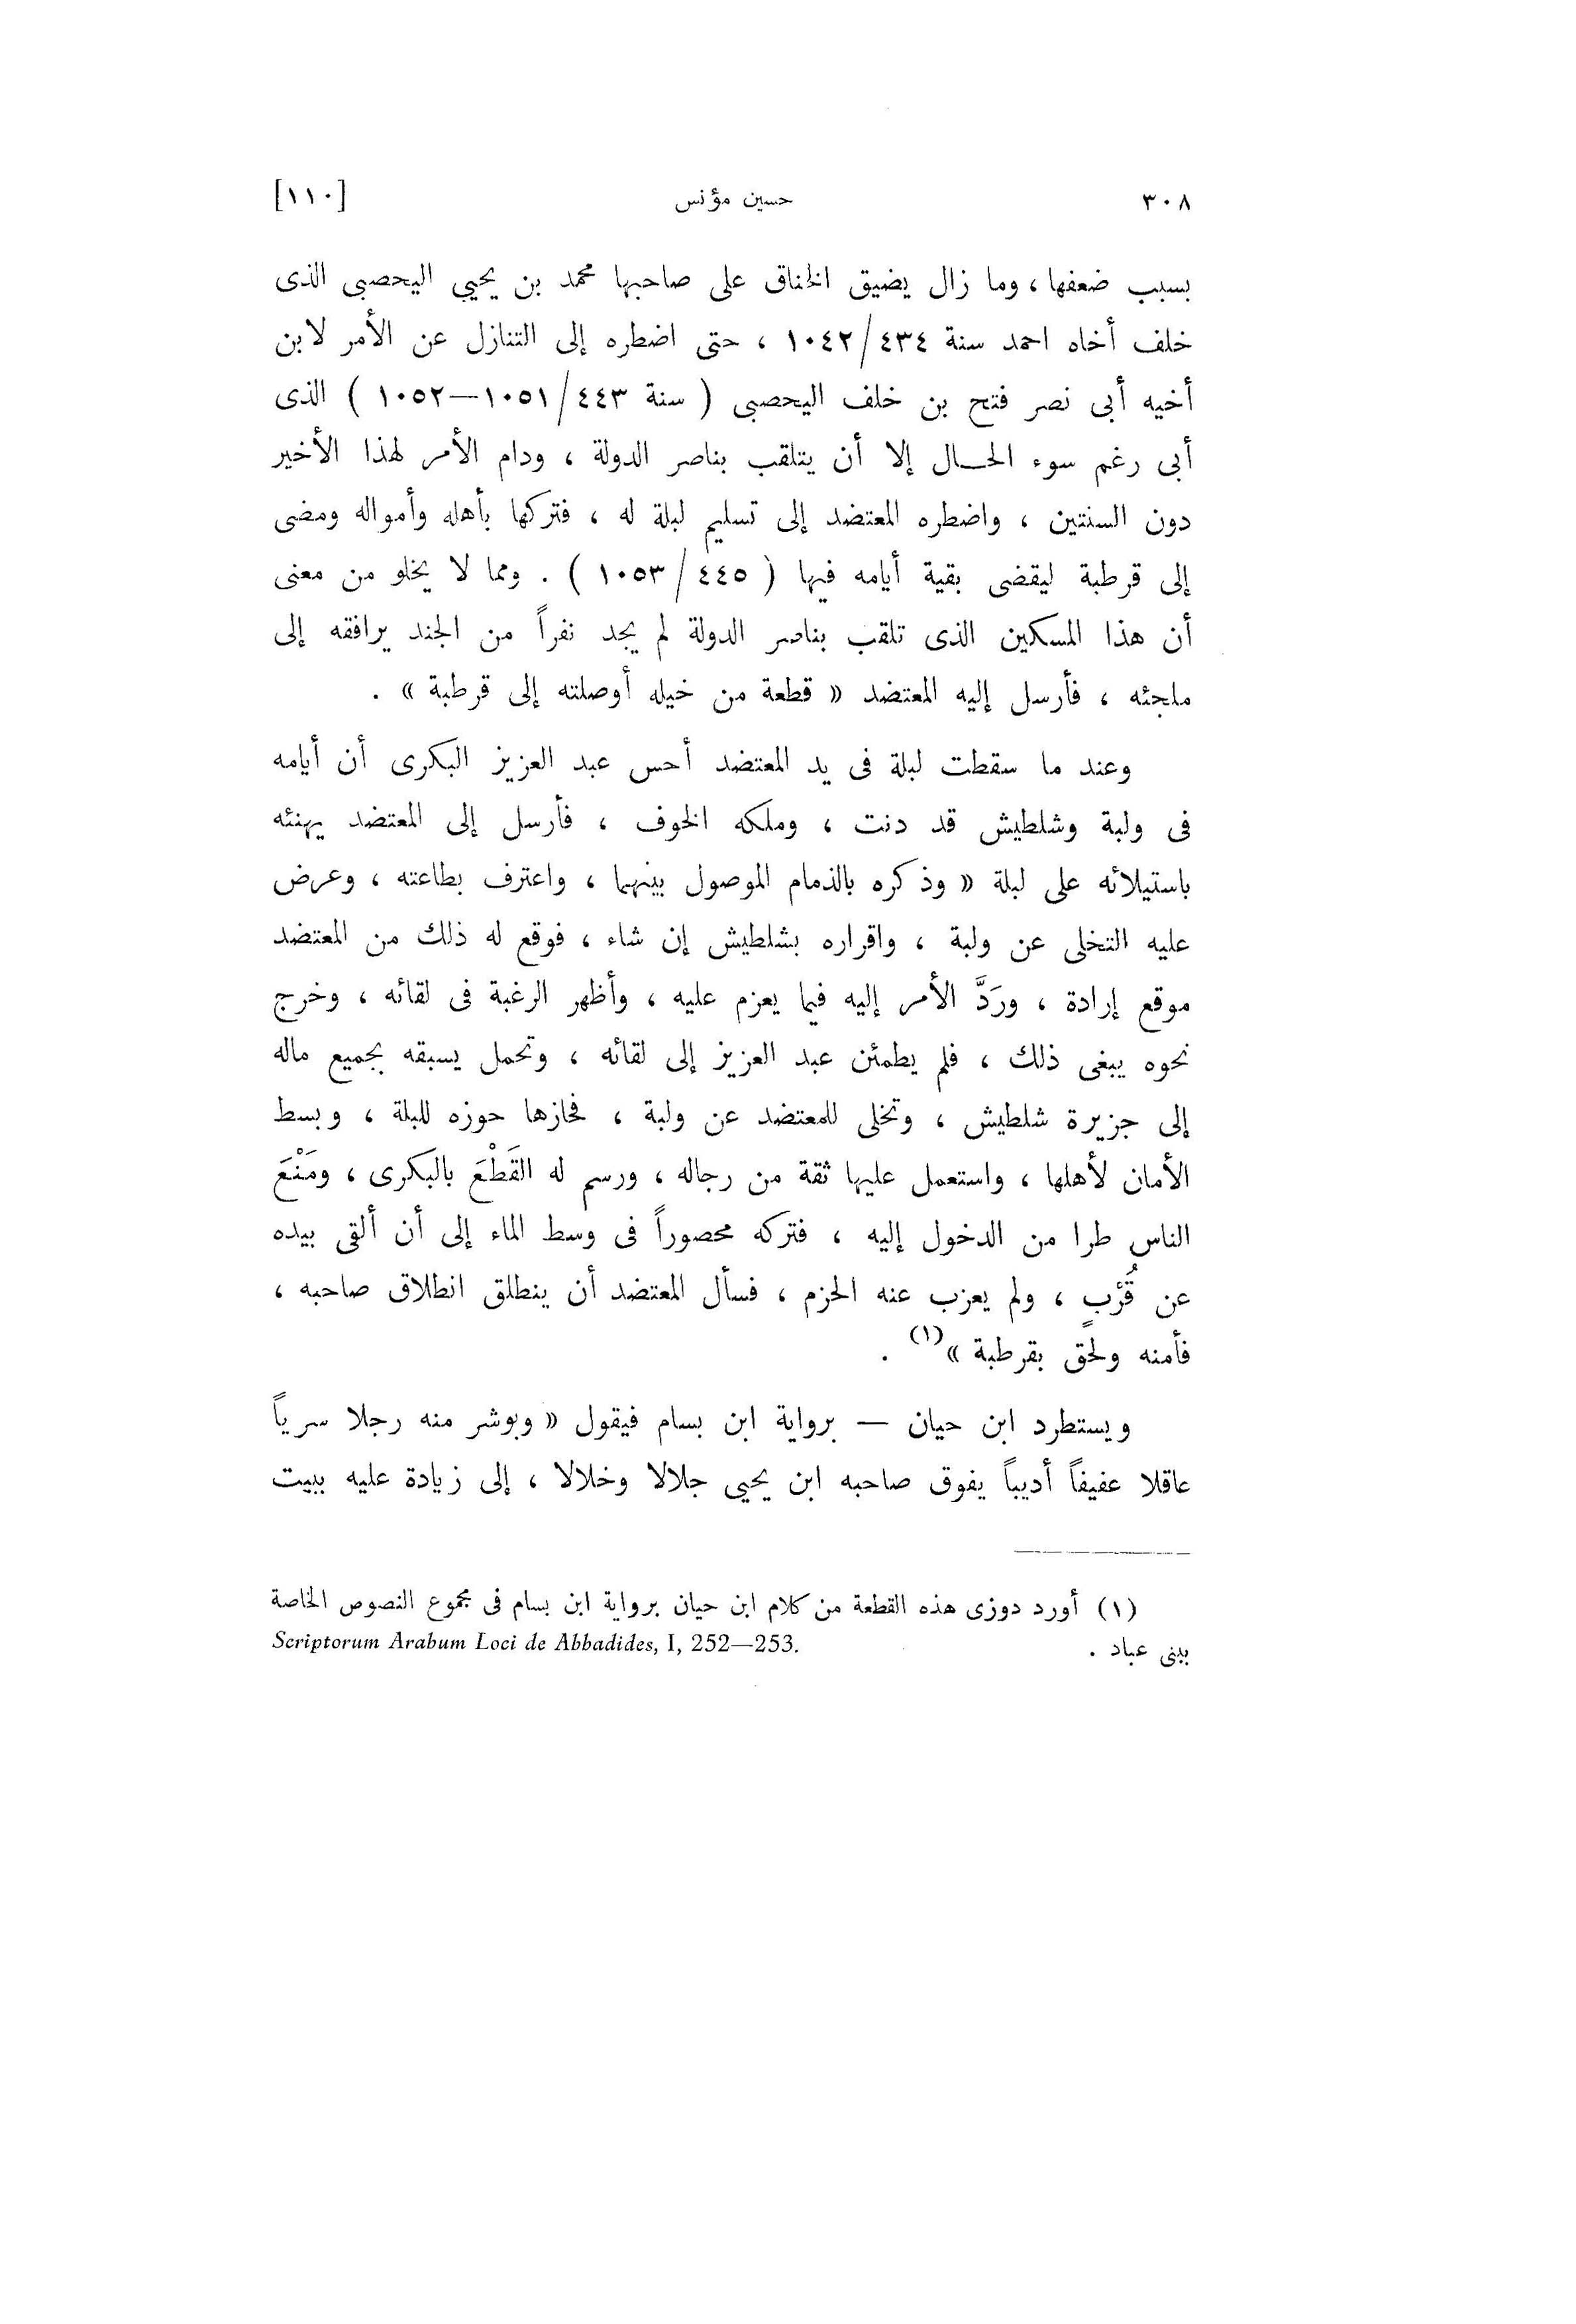 ٣٠٨ حسين مؤنس [١١٠]
بسبب ضعفها ، وما زال يضيق الخناق على صاحبها محمد بن يحيي اليحصبى الذى
خلف أخاه احمد سنة ٤٣٤/١٠٤٢ ، حتى اضطره إلى التنازل عن الأمر لابن
أخيه أبى نصر فتح بن خلف اليحصبى ( سنة ٤٤٣/١٠٥١—١٠٥٢ ) الذى
أبى رغم سوء الحـال إلا أن يتلقب بناصر الدولة ، ودام الأمر لهذا الأخير
دون السنتين ، واضطره المعتضد إلى تسليم لبلة له ، فتركها بأهله وأمواله ومضى
إلى قرطبة ليقضى بقية أيامه فيها ( ٤٤٥/١٠٥٣ ) . ومما لا يخلو من معنى
أن هذا المسكين الذى تلقب بناصر الدولة لم يجد نفراً من الجند يرافقه إلى
ملجئه ، فأرسل إليه المعتضد « قطعة من خيله أوصلته إلى قرطبة » .
وعند ما سقطت لبلة فى يد المعتضد أحس عبد العزيز البكرى أن أيامه
فى ولبة وشلطيش قد دنت ، وملكه الخوف ، فأرسل إلى المعتضد يهنئه
باستيلائه على لبلة « وذكره بالذمام الموصول بينهما ، واعترف بطاعته ، وعرض
عليه التخلى عن ولبة ، واقراره بشلطيش إن شاء ، فوقع له ذلك من المعتضد
موقع إرادة ، ورَدَّ الأمر إليه فيما يعزم عليه ، وأظهر الرغبة فى لقائه ، وخرج
نحوه يبغى ذلك ، فلم يطمئن عبد العزيز إلى لقائه ، وتحمل يسبقه بجميع ماله
إلى جزيرة شلطيش ، وتخلى للمعتضد عن ولبة ، فحازها حوزه للبلة ، وبسط
الأمان لأهلها ، واستعمل عليها ثقة من رجاله ، ورسم له القَطْعَ بالبكرى ، ومَنْعَ
الناس طرا من الدخول إليه ، فتركه محصوراً فى وسط الماء إلى أن ألقى بيده
عن قُرْبٍ ، ولم يعزب عنه الحزم ، فسأل المعتضد أن ينطلق انطلاق صاحبه ،
فأمنه ولحق بقرطبة »(١) .
ويستطرد ابن حيان — برواية ابن بسام فيقول « وبوشر منه رجلا سرياً
عاقلا عفيفاً أديباً يفوق صاحبه ابن يحيى جلالا وخلالا ، إلى زيادة عليه ببيت
(١) أورد دوزى هذه القطعة من كلام ابن حيان برواية ابن بسام فى مجموع النصوص الخاصة
ببنى عباد . Scriptorum Arabum Loci de Abbadides, I, 252—253.